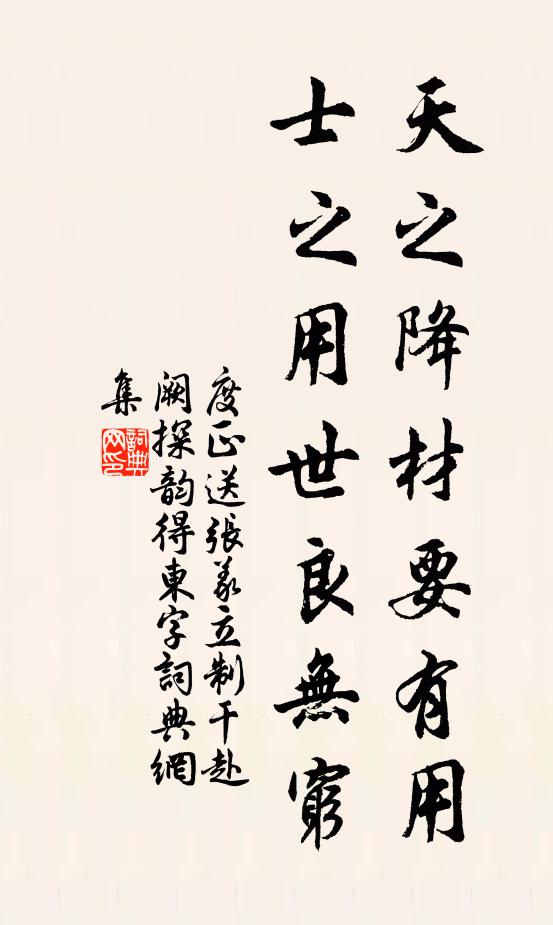 天之降材要有用
士之用世良無窮
度正送張義立制干赴
闕探韵得東字詞典網
集
詞典網印